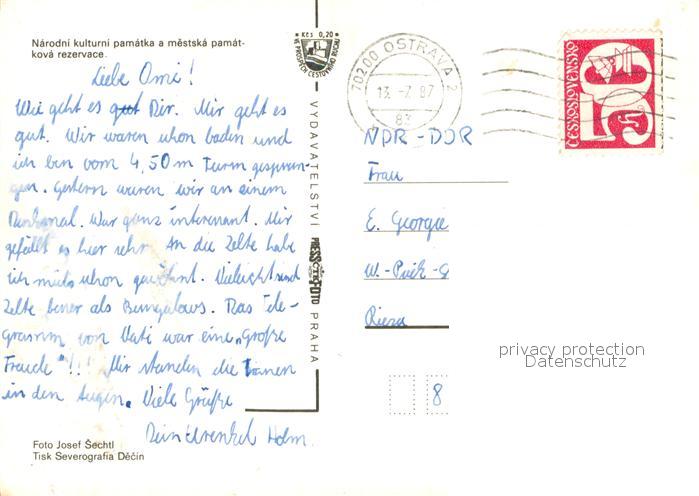 Národní kulturní památka a městská památ-
ková rezervace.
Liebe Omi!
Wie geht es gut Dir. Mir geht es
gut. Wir waren schon baden und
ich bin vom 4,50 m Turm gesprun-
gen. Gestern waren wir an einem
Denkmal. War ganz interessant. Mir
gefällt es hier sehr. An die Zelte habe
ich mich schon gewöhnt. Vielleicht sind
Zelte besser als Bungalows. Das Tele-
gramm von Vati war eine „Große
Freude"!!! Mir standen die Tränen
in den Augen. Viele Grüße
Dein Urenkel Holm.
Foto Josef Šechtl
Tisk Severografia Děčín
Kčs 0,20
VE PROSPĚCH CESTOVNÍHO RUCHU
VYDAVATELSTVÍ PRESSFOTO PRAHA
70200 OSTRAVA 2
13.-7.87
ČESKOSLOVENSKO
50
NDR-DDR
Frau
E. Georgie
W.-Pieck-
Riesa
8
privacy protection
Datenschutz